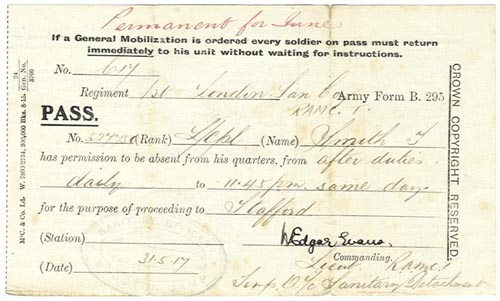 Permanent for June
If a General Mobilization is ordered every soldier on pass must return
immediately to his unit without waiting for instructions.
No. 617
Regiment 1st London San Co Army Form B. 295
RAMC. T.
PASS.
No. (Rank) (Name) Smith
has permission to be absent from his quarters, from after duties
daily to 11.45 pm same day
for the purpose of proceeding to Stafford
(Station) W Edgar Evans
Commanding
(Date) 31.5.17 Lieut. RAMC
O/c Sanitary Detachment
CROWN COPYRIGHT RESERVED.